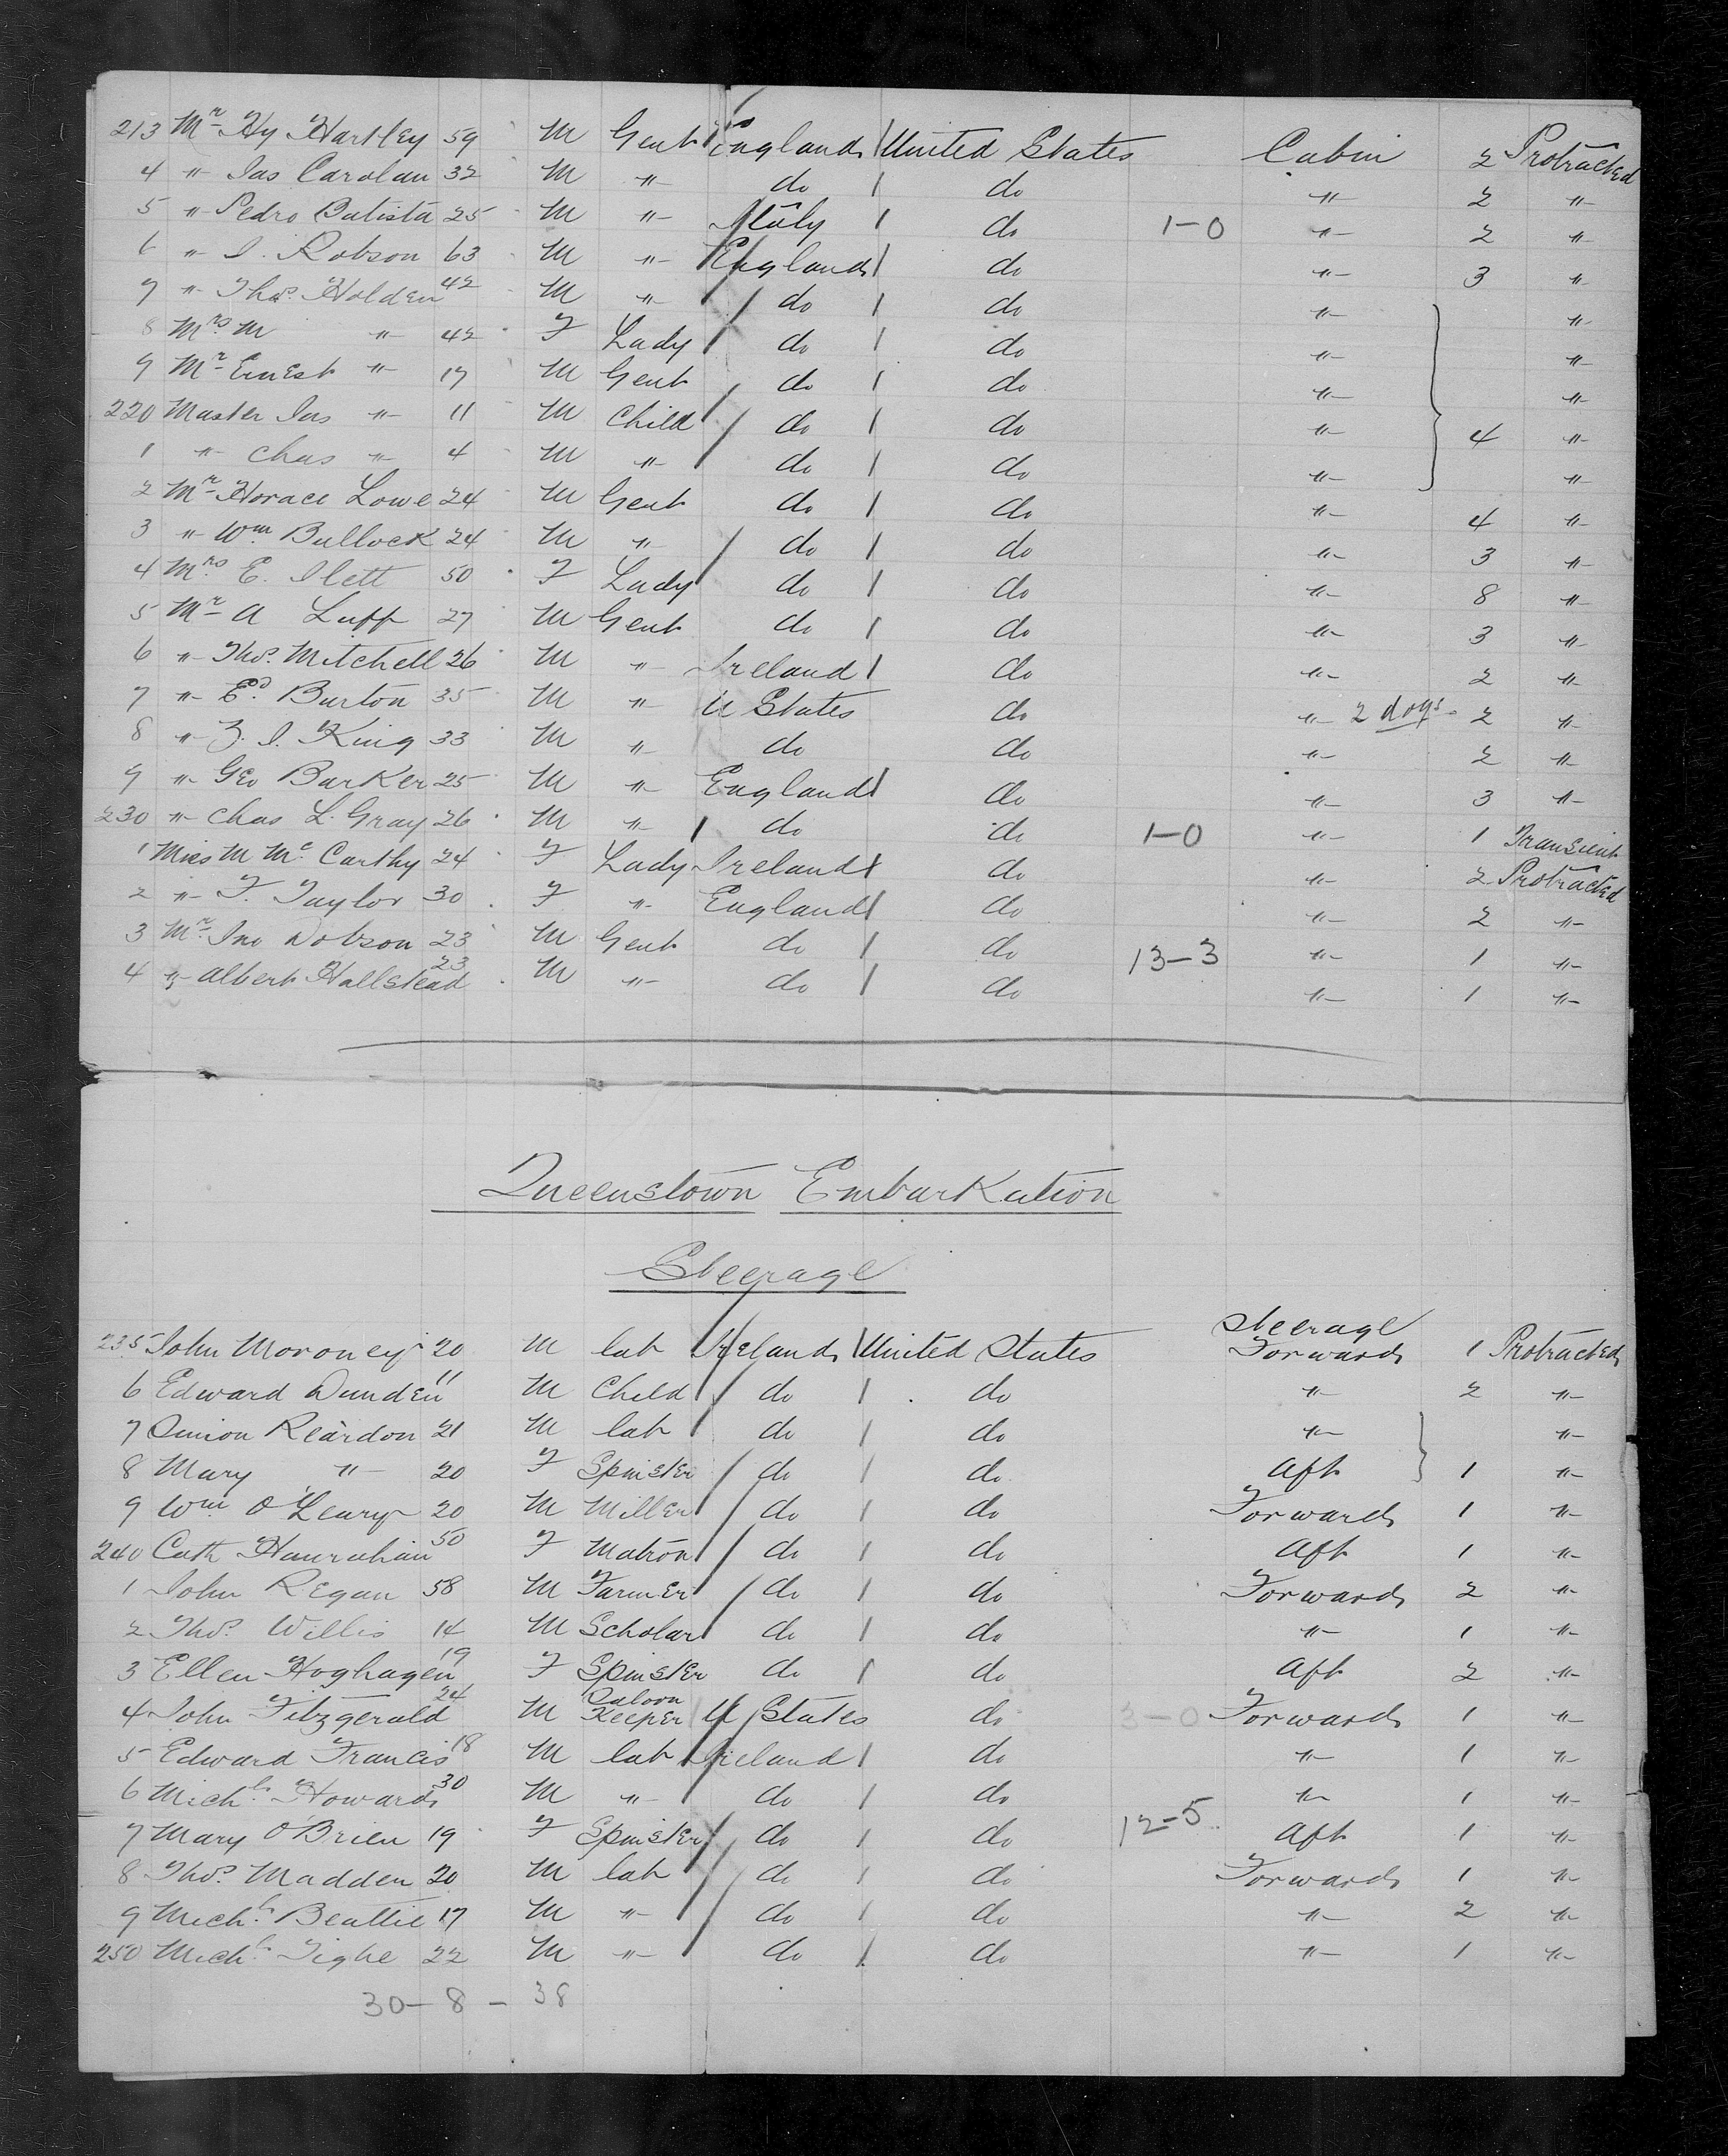 213 Mr Hy Hartley 59 M Gent England / United States Cabin 2 Protracted
4 " Jas Carolan 32 M " do / do " 2 "
5 " Pedro Batista 25 M " Italy / do 1-0 " 2 "
6 " J. Robson 63 M " England / do " 3 "
7 " Thos. Holden 42 M " do / do " "
8 Mrs M " 42 F Lady do / do " "
9 Mr Ernest " 17 M Gent do / do " "
220 Master Jas " 11 M Child do / do " 4 "
1 " Chas " 4 M " do / do " "
2 Mr Horace Lowe 24 M Gent do / do " 4 "
3 " Wm Bullock 24 M " do / do " 3 "
4 Mrs E. Ilett 50 F Lady do / do " 8 "
5 Mr A Luff 27 M Gent do / do " 3 "
6 " Thos. Mitchell 26 M " Ireland / do " 2 "
7 " Ed. Burton 35 M " U States do " 2 dogs 2 "
8 " Z. J. King 33 M " do do " 2 "
9 " Geo Barker 25 M " England / do " 3 "
230 " Chas L. Gray 26 M " / do do 1-0 " 1 Transient
1 Miss M McCarthy 24 F Lady Ireland / do " 2 Protracted
2 " F. Taylor 30 F " England / do " 2 "
3 Mr Jno Dobson 23 M Gent do / do 13-3 " 1 "
4 " Albert Hallstead 23 M " do / do " 1 "
Queenstown Embarkation
Steerage
Steerage
235 John Moroney 20 M lab Ireland / United States Forward 1 Protracted
6 Edward Dunden 11 M Child do / do " 2 "
7 Simon Reardon 21 M lab do / do " "
8 Mary " 20 F Spinster do / do Aft 1 "
9 Wm O'Leary 20 M Miller do / do Forward 1 "
240 Cath Hanrahan 50 F Matron do / do Aft 1 "
1 John Regan 58 M Farmer do / do Forward 2 "
2 Thos. Willis 14 M Scholar do / do " 1 "
3 Ellen Hoghagen 19 F Spinster do / do Aft 2 "
4 John Fitzgerald 24 M Saloon Keeper U States do 3-0 Forward 1 "
5 Edward Francis 18 M lab Ireland / do " 1 "
6 Michl. Howard 30 M " do / do " 1 "
7 Mary O'Brien 19 F Spinster do / do 12-5 Aft 1 "
8 Thos. Madden 20 M lab do / do Forward 1 "
9 Michl. Beattie 17 M " do / do " 2 "
250 Michl. Tighe 22 M " do / do " 1 "
30-8-38